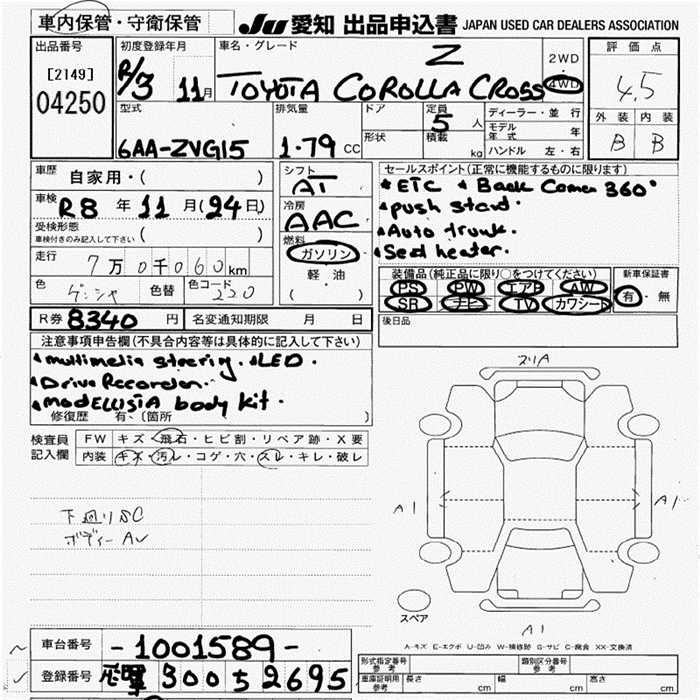 車内保管・守衛保管
JU 愛知 出品申込書 JAPAN USED CAR DEALERS ASSOCIATION
出品番号
[2149]
04250
初度登録年月
R/3 11月
車名・グレード
Z
TOYOTA COROLLA CROSS
2WD
・
4WD
評価点
4.5
外装 内装
B B
型式
6AA-ZVG15
排気量
1.79 CC
ドア
形状
定員
5 人
積載
kg
ディーラー・並行
モデル年式 年
ハンドル 左・右
車歴
自家用・( )
車検
R8 年 11 月 (24日)
受検形態
車検付きのみ記入して下さい ( )
走行
7万0千060km
色
色替
色コード
220
シフト
AT
冷房
AAC
燃料
ガソリン
・
軽・油
( )
セールスポイント(正常に機能するものに限ります)
* ETC * Back Camer 360°
* push stard.
* Auto trunk.
* Seat heater.
装備品(純正品に限り○をつけてください)
PS PW エアB AW
SR ナビ TV カワシート
新車保証書
有・無
後日品
R券 8340 円
名変通知期限 月 日
注意事項申告欄(不具合内容等は具体的に記入して下さい)
* multimedia steering. * LED.
* Drive Recorder.
* modELLISTA body kit.
修復歴 有、(箇所
検査員
記入欄
FW キズ・飛石・ヒビ割・リペア跡・X要
内装 キズ・汚レ・コゲ・穴・スレ・キレ・破レ
下廻りSC
ボディーAU
スリA
A1
A1
スペア
A1
A-キズ E-エクボ U-凹み W-補修跡 S-サビ C-腐食 XX-交換済
車台番号
-1001589-
登録番号
300 5 2695
形式指定番号
参考
類別区分番号
参考
車庫証明用
参考
長さ cm
幅 cm
高さ cm